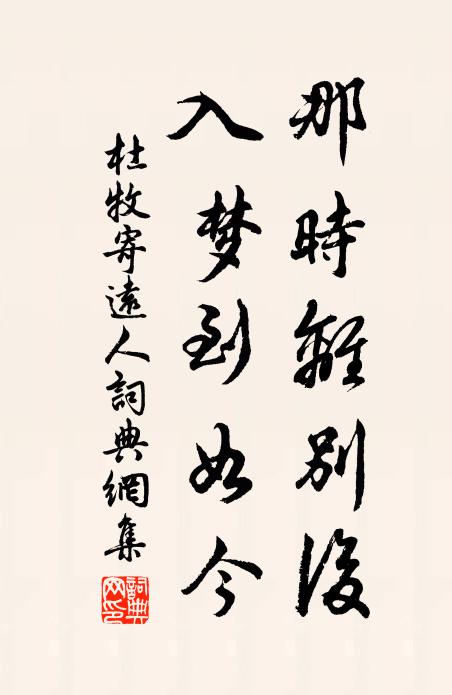 那時離別後
入梦到如今
杜牧寄遠人詞典網集
詞典網印